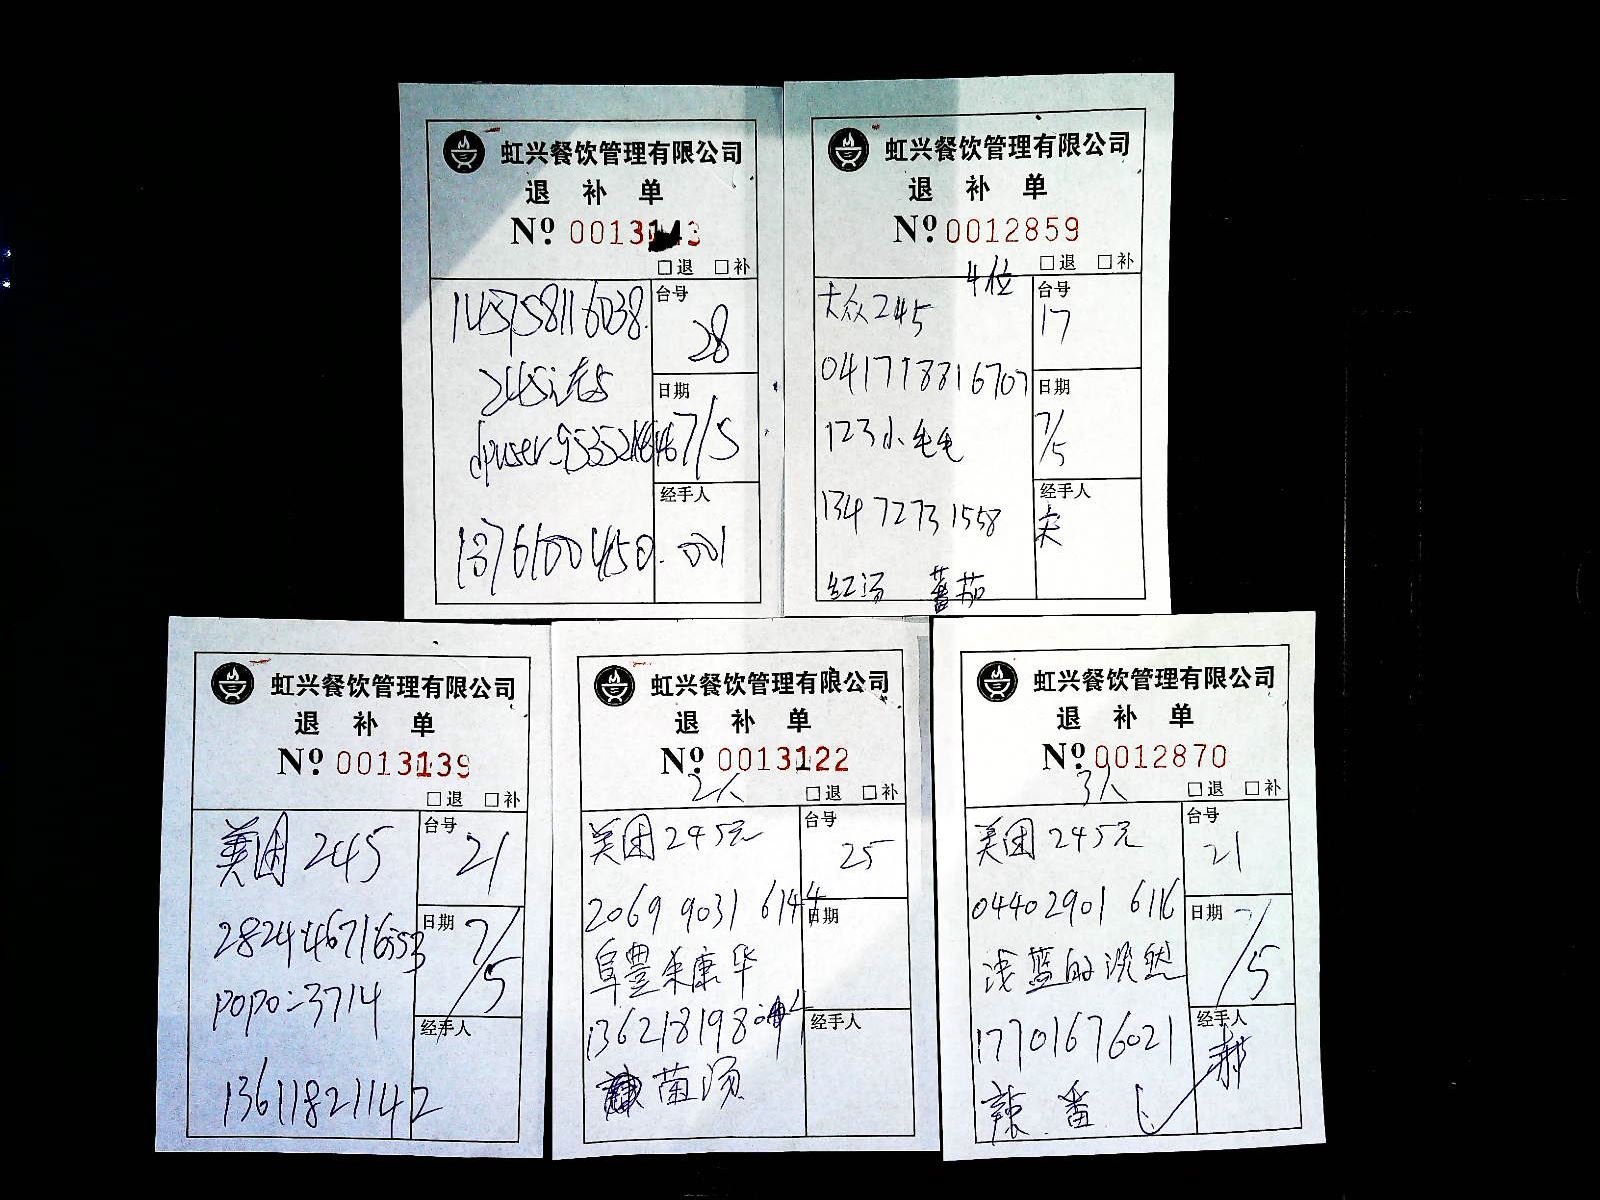 虹兴餐饮管理有限公司
退 补 单
Nº 0013143
□退 □补
145758116038
台号
28
245
日期
7/5
经手人
13761100450
001
虹兴餐饮管理有限公司
退 补 单
Nº 0012859
4位
□退 □补
大众245
台号
17
041718816707
日期
7/5
123小毛毛
经手人
134 7273 1558
红汤 蕃茄
虹兴餐饮管理有限公司
退 补 单
Nº 0013139
□退 □补
美团 245
台号
21
日期
7/5
popo-3714
经手人
13611821142
虹兴餐饮管理有限公司
退 补 单
Nº 0013122
2人
□退 □补
美团245元
台号
25
2069 9031 6144
日期
阜豐朱康华
经手人
菌汤
虹兴餐饮管理有限公司
退 补 单
Nº 0012870
3人
□退 □补
美团 245元
台号
21
04402901 6116
日期
7/5
浅蓝的淡然
经手人
17701676021
辣 番